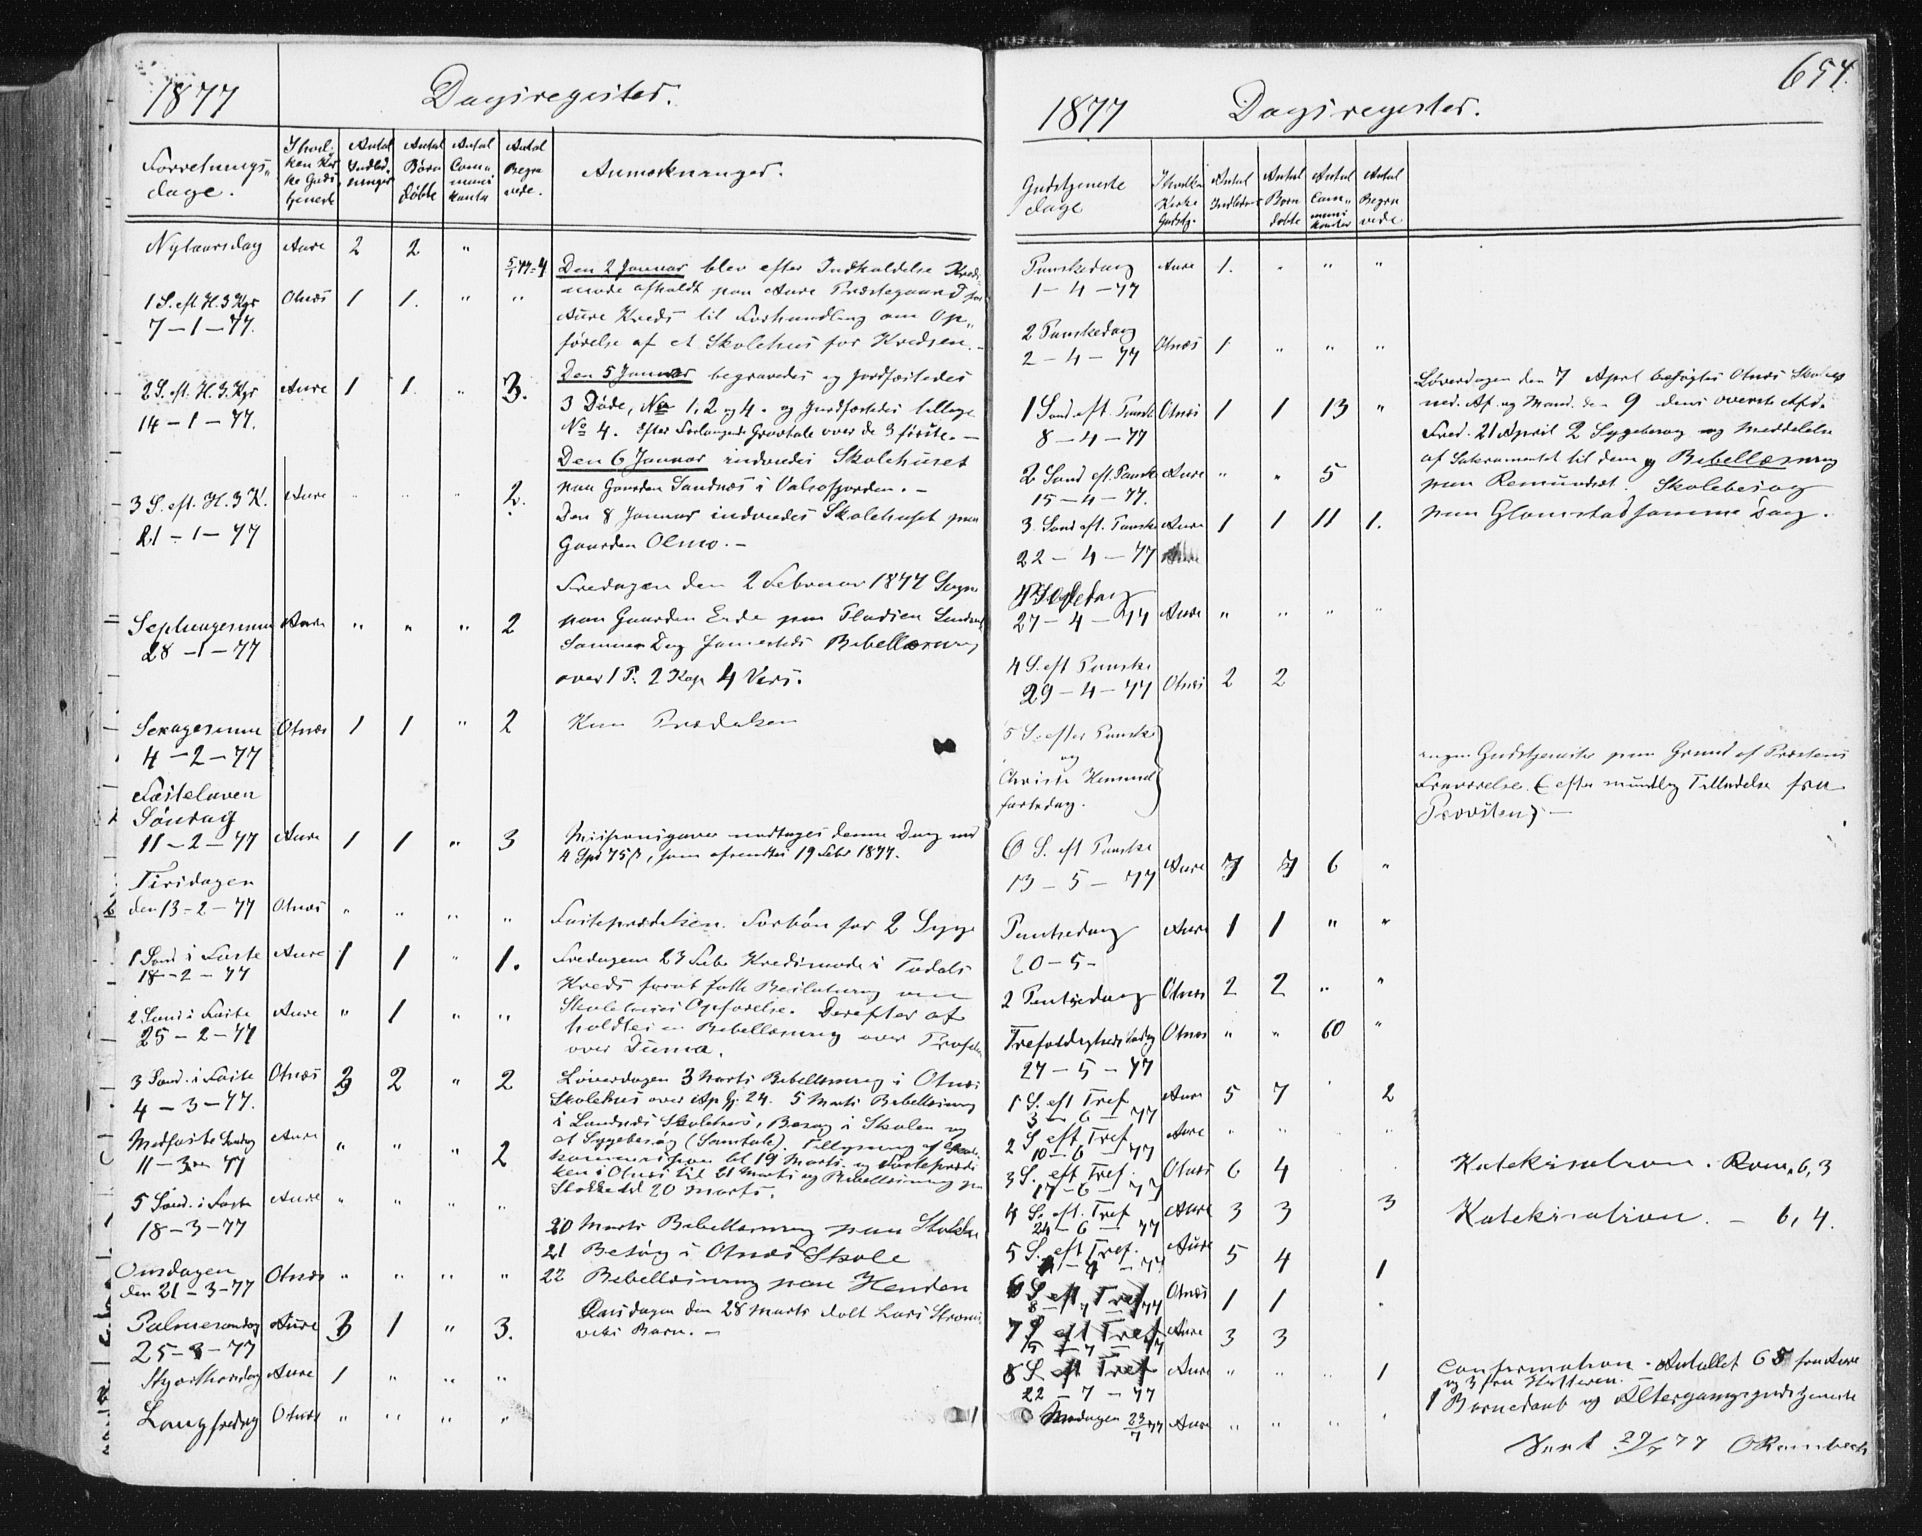 1877 Dagsregister.
Forretnings-
dage.
Antal
Børn
døbte
Antal
Com-
muni
kanter
Antal
Begra
vede.
Anmerkninger.
Nytaarsdag Aure 2 2 "
5/1 77=4 Den 2 Januar blev efter Indkaldelse Kreds
1 S. eft. H. 3 Kgr Otnæs 1 1. " "
møde afholdt paa Aure Præstegaard for
7-1-77.
Aure Kreds til Forhandling om Op-
førelse af et Skolehus for Kredsen.-
2 S. eft. H. 3 Kgr Aure 1 1. " 3.
14-1-77.
Den 5 Januar begravedes og jordfæstedes
3 Døde, No 1, 2 og 4. og jordfæstedes tillige
No 4. Efter Forlangende Gravtale over de 3 første.-
Den 6 Januar indviedes Skolehuset
3 S. eft. H. 3 K. Aure " " " 2.
21-1-77
paa Gaarden Sandnæs i Valsøfjorden.-
Den 8 Januar indviedes Skolehuset paa
Gaarden Olmo.-
Fredagen den 2 Februar 1877
Septuagesima Aure " " " 2
28-1-77
paa Gaarden Ende paa
Samme Dag Bibellæsning
over 1 P. 2 Kap 4 Vers.
Sexagesima Otnæs 1 1 " 2
4-2-77
Kun Prædiken
Fastelaven
Søndag
11-2-77 Aure 1 1 " 3
Missionsgaver modtages denne Dag med
4 Spd 75 β, som afsendtes 19 Febr 1877.
Tirsdagen
den 13-2-77 Otnæs " " " "
Fasteprædiken. Forbøn for 2 Syge
1 Sønd i Faste Aure 1 1 " 1.
18-2-77
Fredagen 23 Febr Kredsmøde i Todals
Kreds
2 Sønd i Faste Aure " 1 " "
25-2-77
Skolehuses Opførelse. Derefter af
holdtes en Bibellæsning over Trofasthed
3 Sønd. i Faste Otnæs 2 2 " 2
4-3-77.
Løverdagen 3 Marts Bibellæsning i Otnæs
Skolehus over Ap Gj. 24. 5 Marts Bibellæsning
i Sandnæs Skolehus, Besøg i Skolen og
et Sygebesøg (Samtale). Tillysning af Skole
Midfaste Søndag Aure " " " 2
11-3-77
kommission til 19 Marts og Fasteprædi
ken i Otnæs til 21 Marts og Bibellæsning paa
20 Marts.
5 Sønd. i Faste Aure " " " "
18-3-77
20 Marts Bibellæsning paa
21 Besøg i Otnæs Skole
Onsdagen
den 21-3-77 Otnæs " " " "
22 Bibellæsning paa Henden
Palmesøndag Aure 3 1 " 3.
25-3-77
Onsdagen den 28 Marts døbt Lars Strøms
viks Barn.-
Skjærthorsdag Aure 1 " " "
Langfredag Otnæs " " " "
654.
1877 Dagsregister.
Gudstjeneste
dage
Antal
Børn
døbte
Antal
Com-
muni
kanter
Antal
Begra
vede
Paaskedag Aure 1. " " "
1-4-77
2 Paaskedag Otnæs 1 " " "
2-4-77
Løverdagen den 7 April besøgtes Otnæs Skoles
1 Sønd eft. Paaske Otnæs 1 1 13 "
8-4-77
ned. Af. og Mand. den 9 dens øverste Afd.
Fred. 21 April 2 Sygebesøg og Meddelelse
af Sakramentet til dem og Bibellæsning
2 Sønd eft. Paaske Aure " " 5
15-4-77.
paa Remundset. Skolebesøg
3 Sønd eft. Paaske Aure 1 1 11 1.
paa Glamstad samme Dag.
22-4-77
27-4-77 Aure " " " "
4 S. eft Paaske
29-4-77 Otnæs 2 2
5 S. efter Paaske
og
Christi Himmel
fartsdag.
ingen Gudstjeneste paa Grund af Præstens
Fraværelse (efter mundtlig Tilladelse fra
Provsten).-
6 S. eft Paaske
13-5-77 Aure 7 7 6 "
Pintsedag Aure 1 1 " "
20-5-
2 Pintsedag Otnæs 2 2 " "
Trefoldigheds Søndag Otnæs " " 60 "
27-5-77
1 S. eft Tref Aure 5 7 2
3-6-77
2 S. eft Tref Aure " " " "
10-6-77
3 S. eft Tref. Otnæs 6 4
17-6-77
Katekisation. Rom. 6, 3
4 S. eft. Tref Aure 3 3 3
24-6-77
Katekisation. - 6, 4.
5 S. eft Tref. Aure 5 4 1
6 S. eft Tref Otnæs 1 1
8-7-77
7 S eft Tref Aure 3 3
15-7-77
8 S eft Tref Aure " " " 1
22-7-77
Confirmation. Antallet 65 fra Aure
og 3 fra
Mandagen 23/7 77 Aure " " "
1 Barnedaab og Altergangsgudstjeneste
29/7 77